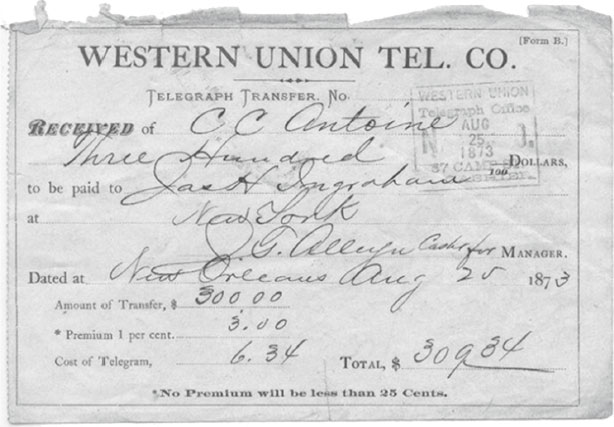 [Form B.]
WESTERN UNION TEL. CO.
TELEGRAPH TRANSFER, No.
WESTERN UNION
Telegraph Office
AUG
25
1873
RECEIVED of C C Antoine
Three Hundred 100 DOLLARS,
to be paid to Jas H Ingraham
at New York
MANAGER.
Dated at New Orleans Aug 25 1873
Amount of Transfer, $ 300.00
* Premium 1 per cent. 3.00
Cost of Telegram, 6.34 TOTAL, $ 309.34
*No Premium will be less than 25 Cents.